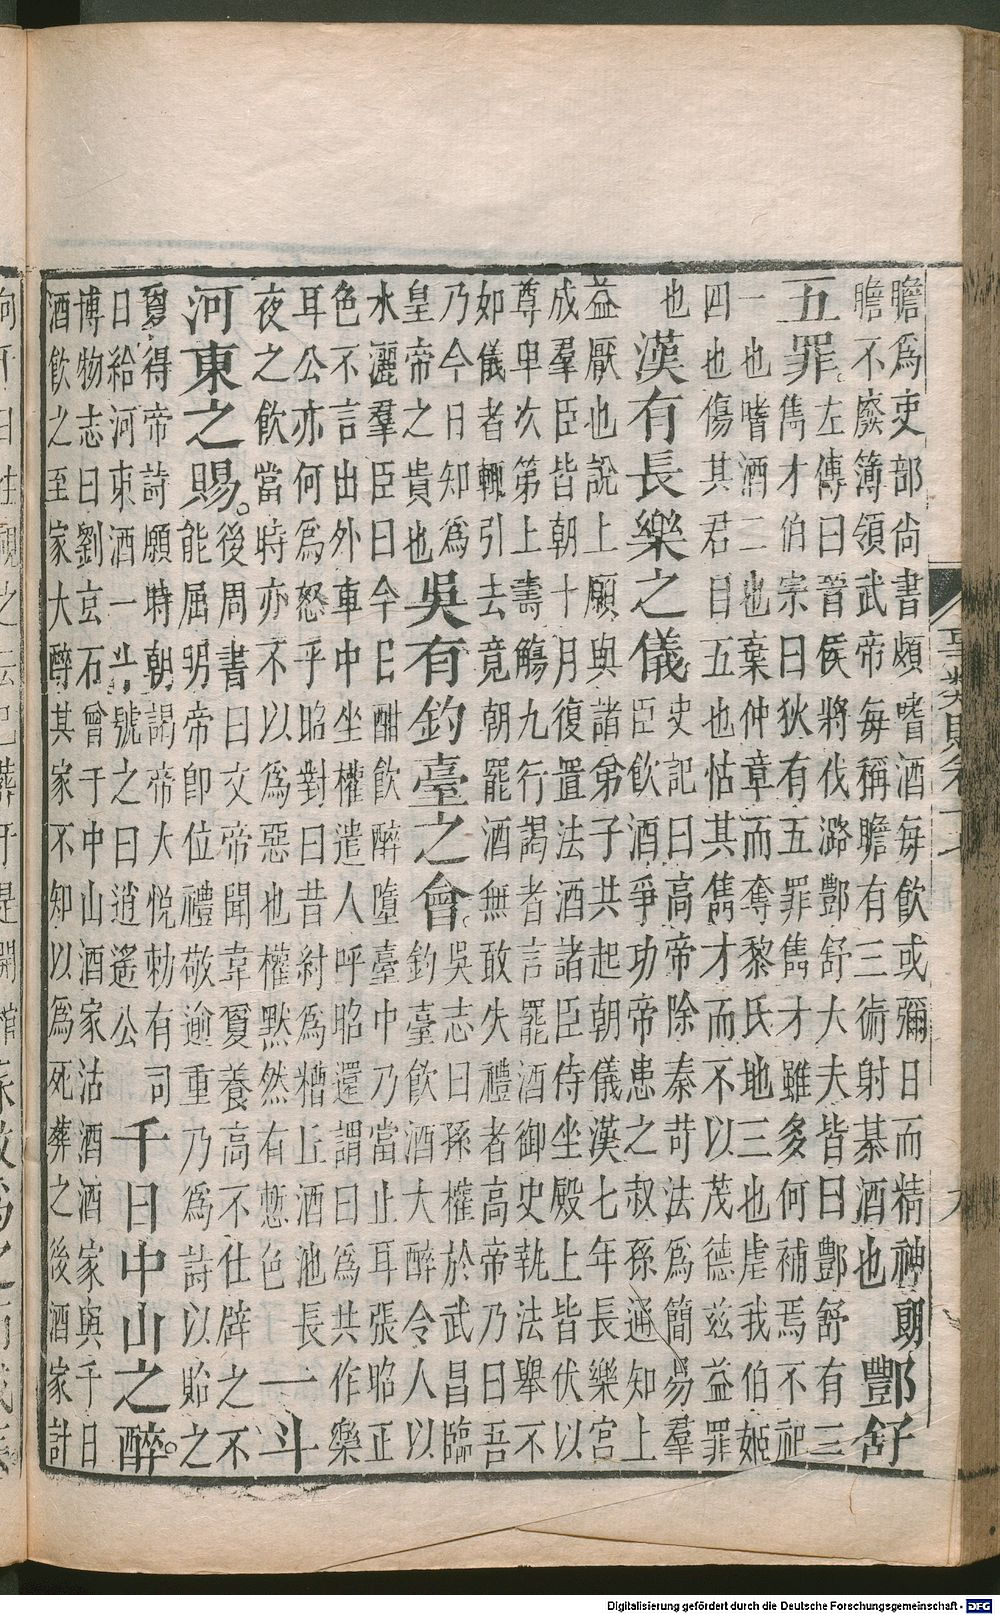 膽爲吏部尚書頗嗜酒每飲或彌日而精神朗
膽不廢簿領武帝每稱膽有三術射棊酒也
酆舒
五罪。
左傳曰晉侯將伐潞酆舒大夫皆曰酆舒有三
雋才伯宗曰狄有五罪雋才雖多何補焉不祀
一也嗜酒二也棄仲章而奪黎氏地三也虐我伯姬
四也傷其君目五也怙其雋才而不以茂德茲益罪
也
漢有長樂之儀。
史記曰高帝除秦苛法爲簡易羣
臣飲酒爭功帝患之叔孫通知上
益厭也說上願與諸弟子共起朝儀漢七年長樂宮
成羣臣皆朝十月復置法酒諸臣侍坐殿上皆伏以
尊卑次第上壽觴九行謁者言罷酒御史執法舉不
如儀者輒引去竟朝罷酒無敢失禮者高帝乃曰吾
乃今日知爲
皇帝之貴也
吳有釣臺之會。
吳志曰孫權於武昌臨
釣臺飲酒大醉令人以
水灑羣臣曰今日酣飲醉墮臺中乃當止耳張昭正
色不言出外車中坐權遣人呼昭還謂曰爲共作樂
耳公亦何爲怒乎昭對曰昔紂爲糟丘酒池長
夜之飲當時亦不以爲惡也權默然有慙色
一斗
河東之賜。
後周書曰文帝聞韋敻養高不仕辟之不
能屈明帝卽位禮敬逾重乃爲詩以貽之
敻得帝詩願時朝謁帝大悅勑有司
日給河東酒一斗號之曰逍遙公
千日中山之醉。
博物志曰劉玄石曾于中山酒家沽酒酒家與千日
酒飲之至家大醉其家不知以爲死葬之後酒家計
Digitalisierung gefördert durch die Deutsche Forschungsgemeinschaft - DFG